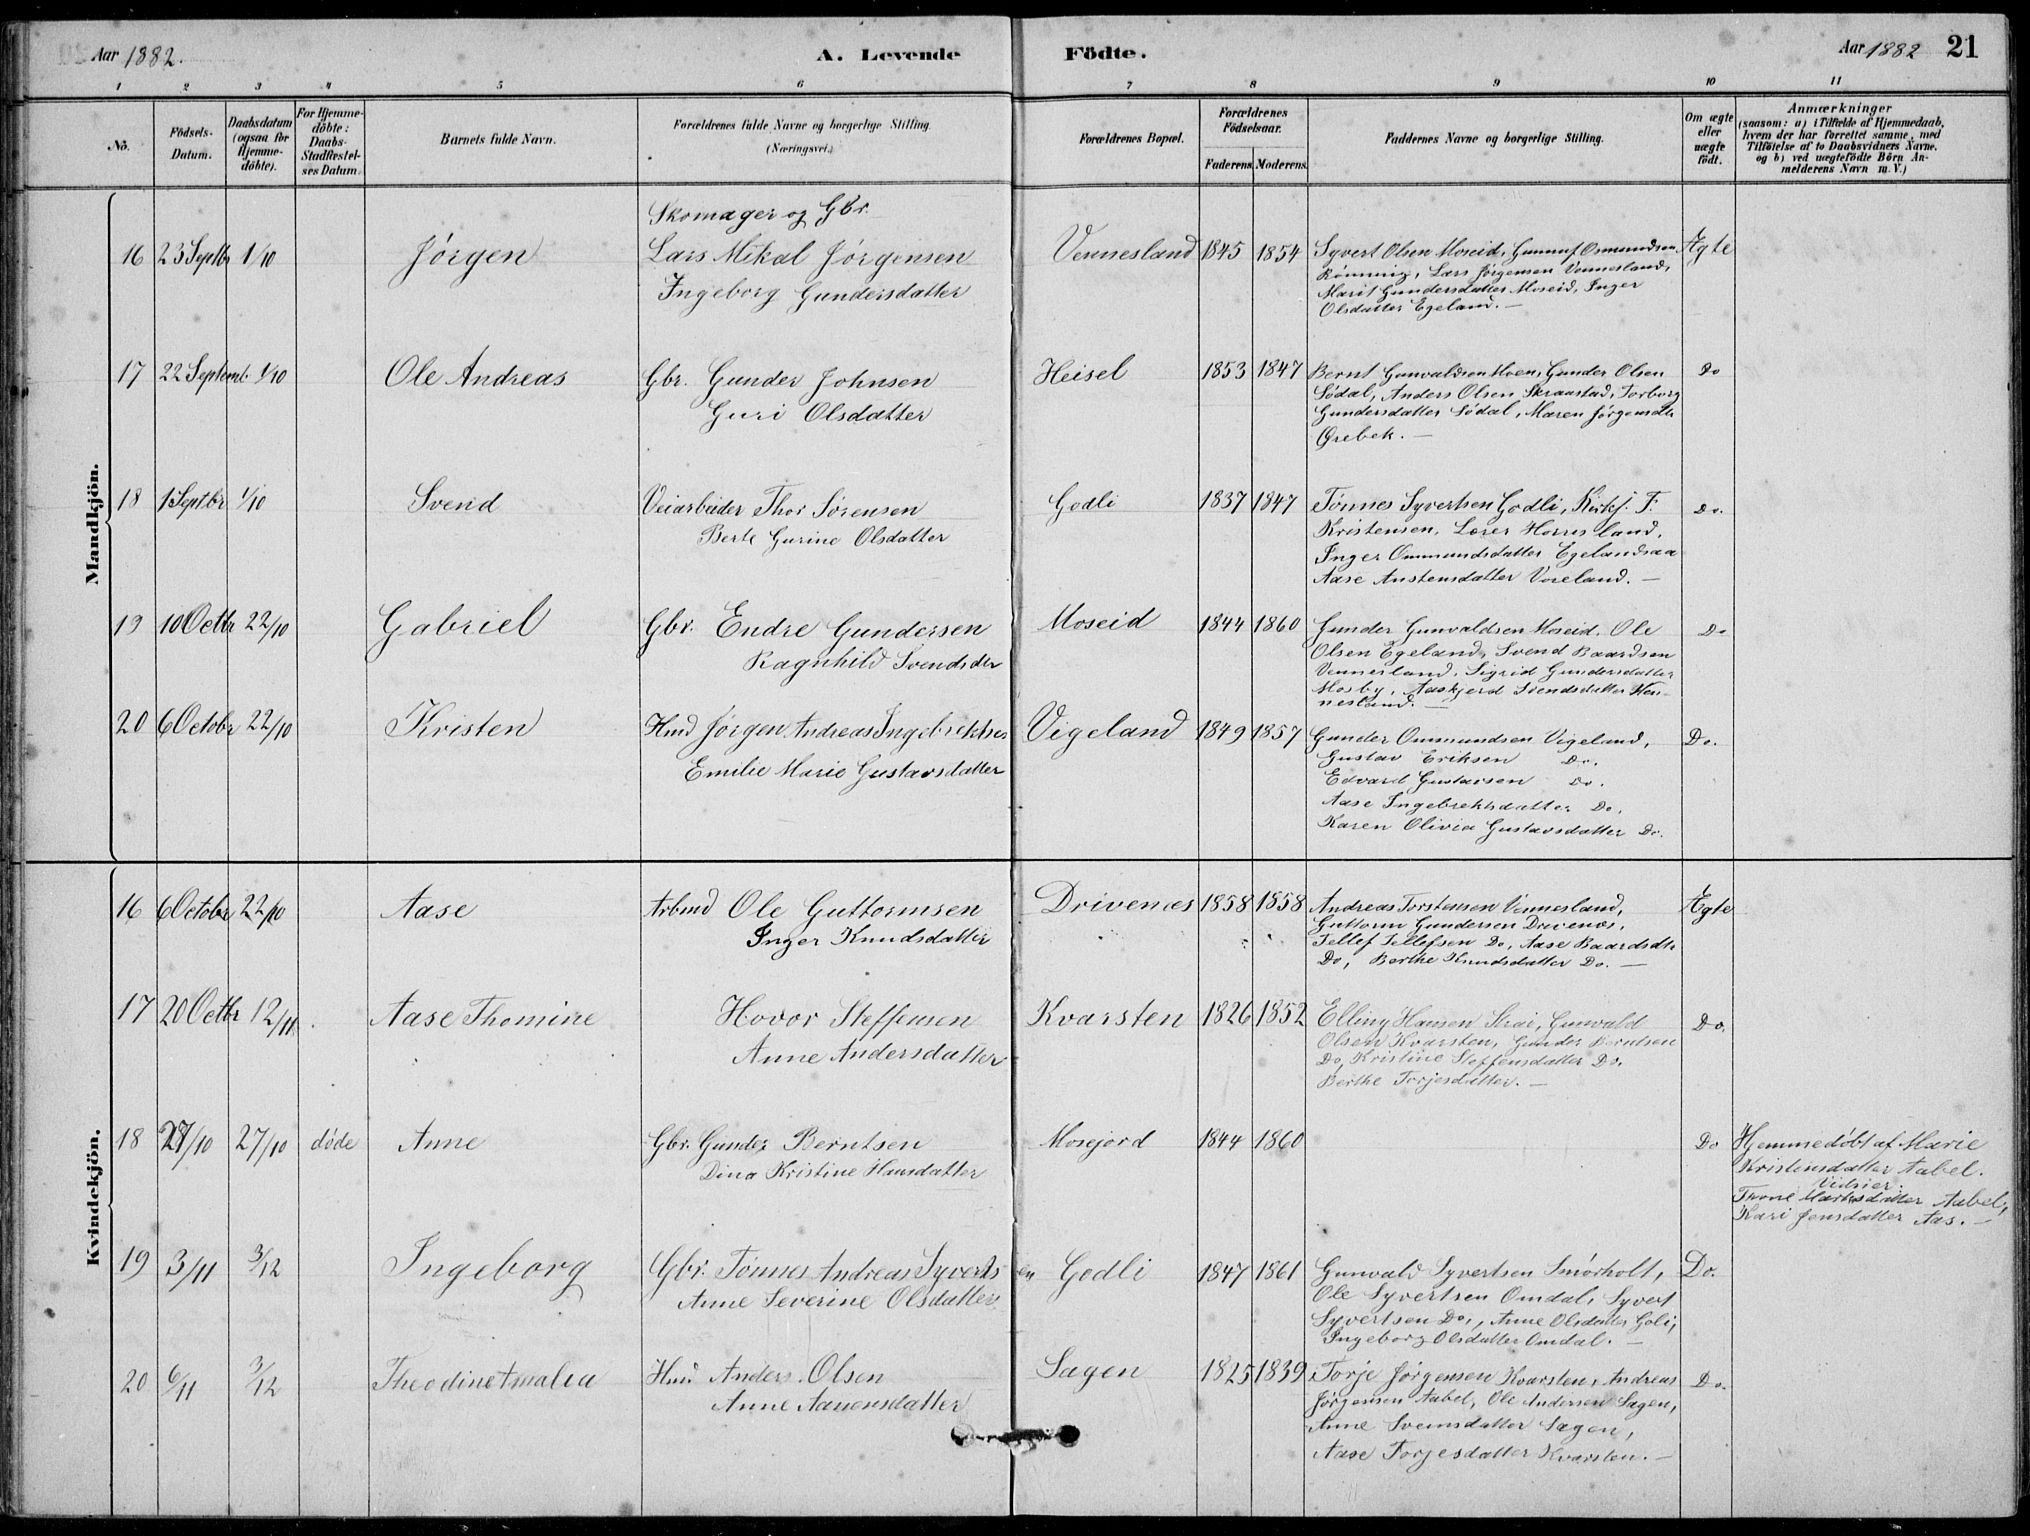 Aar 1882.
A. Levende
Födte.
Aar 1882
21
1 2 3 4 5 6 7 8 9 10 11
No.
Födsels-Datum.
Daabsdatum (ogsaa for Hjemme-döbte).
For Hjemme-döbte: Daabs-Stadfæstel-ses Datum.
Barnets fulde Navn.
Forældrenes fulde Navne og borgerlige Stilling.
(Næringsvei.)
Forældrenes Bopæl.
Forældrenes Födselsaar.
Faderens. Moderens.
Faddernes Navne og borgerlige Stilling.
Om ægte eller uægte födt.
Anmærkninger
(saasom: a) i Tilfælde af Hjemmedaab,
hvem der har forrettet samme, med
Tilföielse af to Daabsvidners Navne,
og b) ved uægtefödte Börn An-
melderens Navn m. V.)
Mandkjön.
Skomager og Gbr.
16 23 Septbr 1/10 Jørgen Lars Mikal Jørgensen
Ingeborg Gundersdatter
Vennesland 1845 1854 Syvert Olsen Moseid, Gunnuf Osmundsen
Rönning, Lars Jørgensen Vennesland,
Marit Gundersdatter Moseid, Inger
Olsdatter Egeland. —
Ægte
17 22 Septemb. 1/10 Ole Andreas Gbr. Gunder Johnsen
Guri Olsdatter
Heisel 1853 1847 Bernt Gunvaldsen Moen, Gunder Olsen
Södal, Anders Olsen Skraastad, Torborg
Gundersdatter Södal, Maren Jørgensdtr
Ørebek. —
Do
18 1 Septbr 1/10 Svend Veiarbeider Thor Sørensen
Berte Gurine Olsdatter
Godli 1837 1847 Tønnes Syvertsen Godli, Kirkj. T.
Kristensen, Lærer Horrisland,
Inger Ommundsdatter Egelandsaa
Aase Anstensdatter Voreland. —
Do.
19 10 Octbr 22/10 Gabriel Gbr. Endre Gundersen
Ragnhild Svendsdtr
Moseid 1844 1860 Gunder Gunvaldsen Moseid, Ole
Olsen Egeland, Svend Baardsen
Vennesland, Sigrid Gundersdatter
Mosby, Aaskjerd Svendsdatter Ven-
nesland. —
Do
20 6 Octobr 22/10 Kristen Hmd Jørgen Andreas Ingebrektsen
Emilie Marie Gustavsdatter
Vigeland 1849 1857 Gunder Ommundsen Vigeland,
Gustav Eriksen Do.
Edvard Gustavsen Do.
Aase Ingebrektsdatter Do.
Karen Olivia Gustavsdatter Do.
Do.
Kvindekjön.
16 6 Octobr 22/10 Aase Arbmd Ole Guttormsen
Inger Knudsdatter
Drivenæs 1858 1858 Andreas Torstensen Vennesland,
Guttorm Gundersen Drivenæs,
Tellef Tellefsen Do, Aase Baardsdtr
Do, Berthe Knudsdatter Do. —
Ægte
17 20 Octbr 12/11 Aase Thomine Hovor Steffensen
Anne Andersdatter
Kvarsten 1826 1852 Elling Hansen Strai, Gunvald
Olsen Kvarsten, Gunder Berntsen
Do, Kristine Steffensdatter Do.
Berthe Torjesdatter. —
Do.
18 27/10 27/10 döde Anne Gbr. Gunder Berntsen
Dina Kristine Hansdatter
Mosejord 1844 1860 Do
Hjemmedöbt af Marie
Kristensdatter Aabel.
Vidner:
Thone Markusdatter Aabel,
Kari Jensdatter Aas. —
19 3/11 3/12 Ingeborg Gbr. Tønnes Andreas Syvertsen
Anne Severine Olsdatter
Godli 1847 1861 Gunvald Syvertsen Smörholt,
Ole Syvertsen Omdal, Syvert
Syvertsen Do., Anne Olsdatter Goli,
Ingeborg Olsdatter Omdal. —
Do.
20 6/11 3/12 Theodine Amalia Hmd Anders Olsen
Anne Aanensdatter
Sagen 1825 1839 Torje Jørgensen Kvarsten, Andreas
Jørgensen Aabel, Ole Andersen Sagen,
Anne Svensdatter Sagen,
Aase Torjesdatter Kvarsten. —
Do.